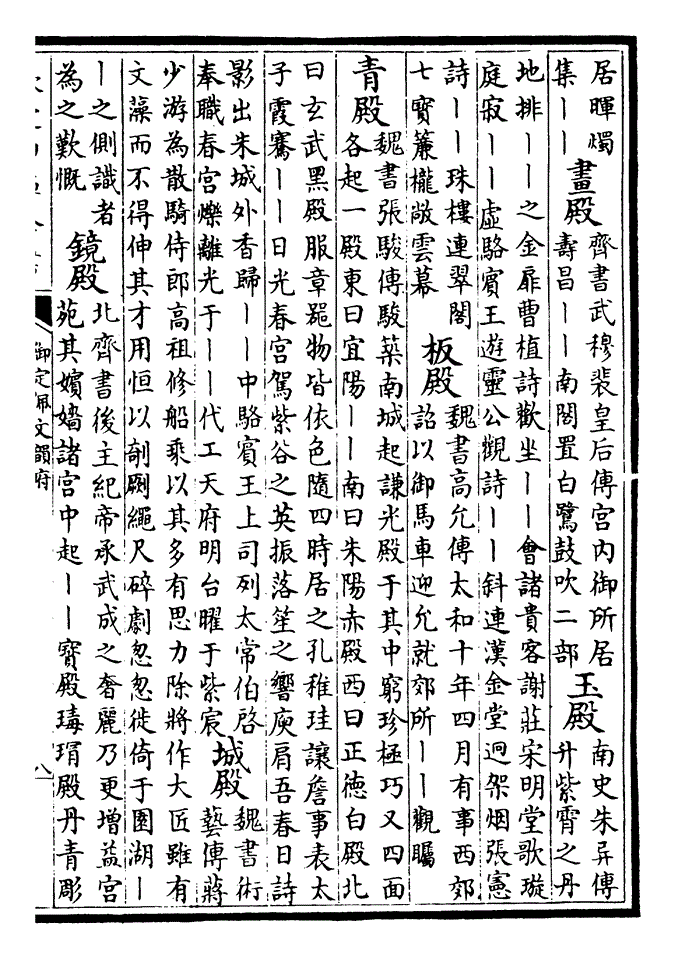 居暉燭
集丨丨
畫殿
齊書武穆裴皇后傳宮内御所居
壽昌丨丨南閣置白鷺鼓吹二部
玉殿
南史朱异傳
升紫霄之丹
地排丨丨之金扉曹植詩歡坐丨丨會諸貴客謝莊宋明堂歌璇
庭寂丨丨虛駱賓王遊靈公觀詩丨丨斜連漢金堂迥架烟張憲
詩丨丨珠樓連翠閣
七寶簾櫳敞雲幕
板殿
魏書高允傳太和十年四月有事西郊
詔以御馬車迎允就郊所丨丨觀矚
青殿
魏書張駿傳駿築南城起謙光殿于其中窮珍極巧又四面
各起一殿東曰宜陽丨丨南曰朱陽赤殿西曰正德白殿北
曰玄武黑殿服章器物皆依色隨四時居之孔稚珪讓詹事表太
子霞騫丨丨日光春宮駕紫谷之英振落笙之響庾肩吾春日詩
影出朱城外香歸丨丨中駱賓王上司列太常伯啓
奉職春宮爍離光于丨丨代工天府明台曜于紫宸
城殿
魏書術
藝傳蔣
少游為散騎侍郎高祖修船乘以其多有思力除將作大匠雖有
文藻而不得伸其才用恒以剞劂繩尺碎劇忽忽徙倚于園湖丨
丨之側識者
為之歎慨
鏡殿
北齊書後主紀帝承武成之奢麗乃更增益宮
苑其嬪嬙諸宮中起丨丨寶殿瑇瑁殿丹青彫
御定佩文韻府
八